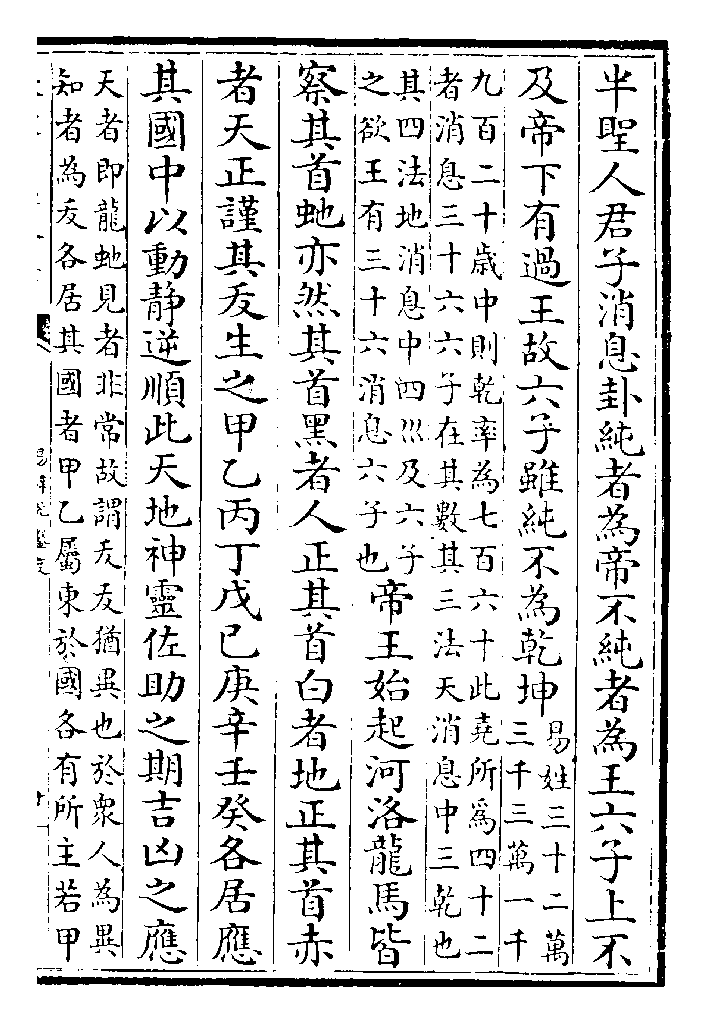 半聖人君子消息卦純者為帝不純者為王六子上不
及帝下有過王故六子雖純不為乾坤
易姓三十二萬
三千三萬一千
九百二十歲中則乾率為七百六十此堯所為四十二
者消息三十六六子在其數其三法天消息中三乾也
其四法地消息中四巛及六子
之欲王有三十六消息六子也
帝王始起河洛龍馬皆
察其首虵亦然其首黑者人正其首白者地正其首赤
者天正謹其犮生之甲乙丙丁戊己庚辛壬癸各居應
其國中以動静逆順此天地神靈佐助之期吉凶之應
天者即龍虵見者非常故謂犮犮猶異也於衆人為異
知者為犮各居其國者甲乙屬東於國各有所主若甲